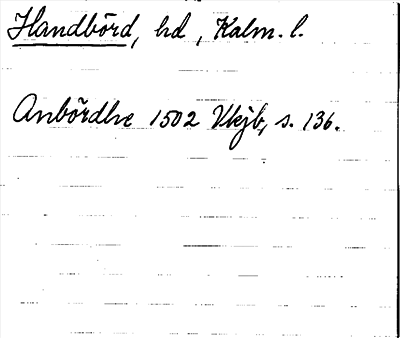 Handbörd, hd, Kalm. l.
Anbördhe 1502 Vtejb, s. 136.